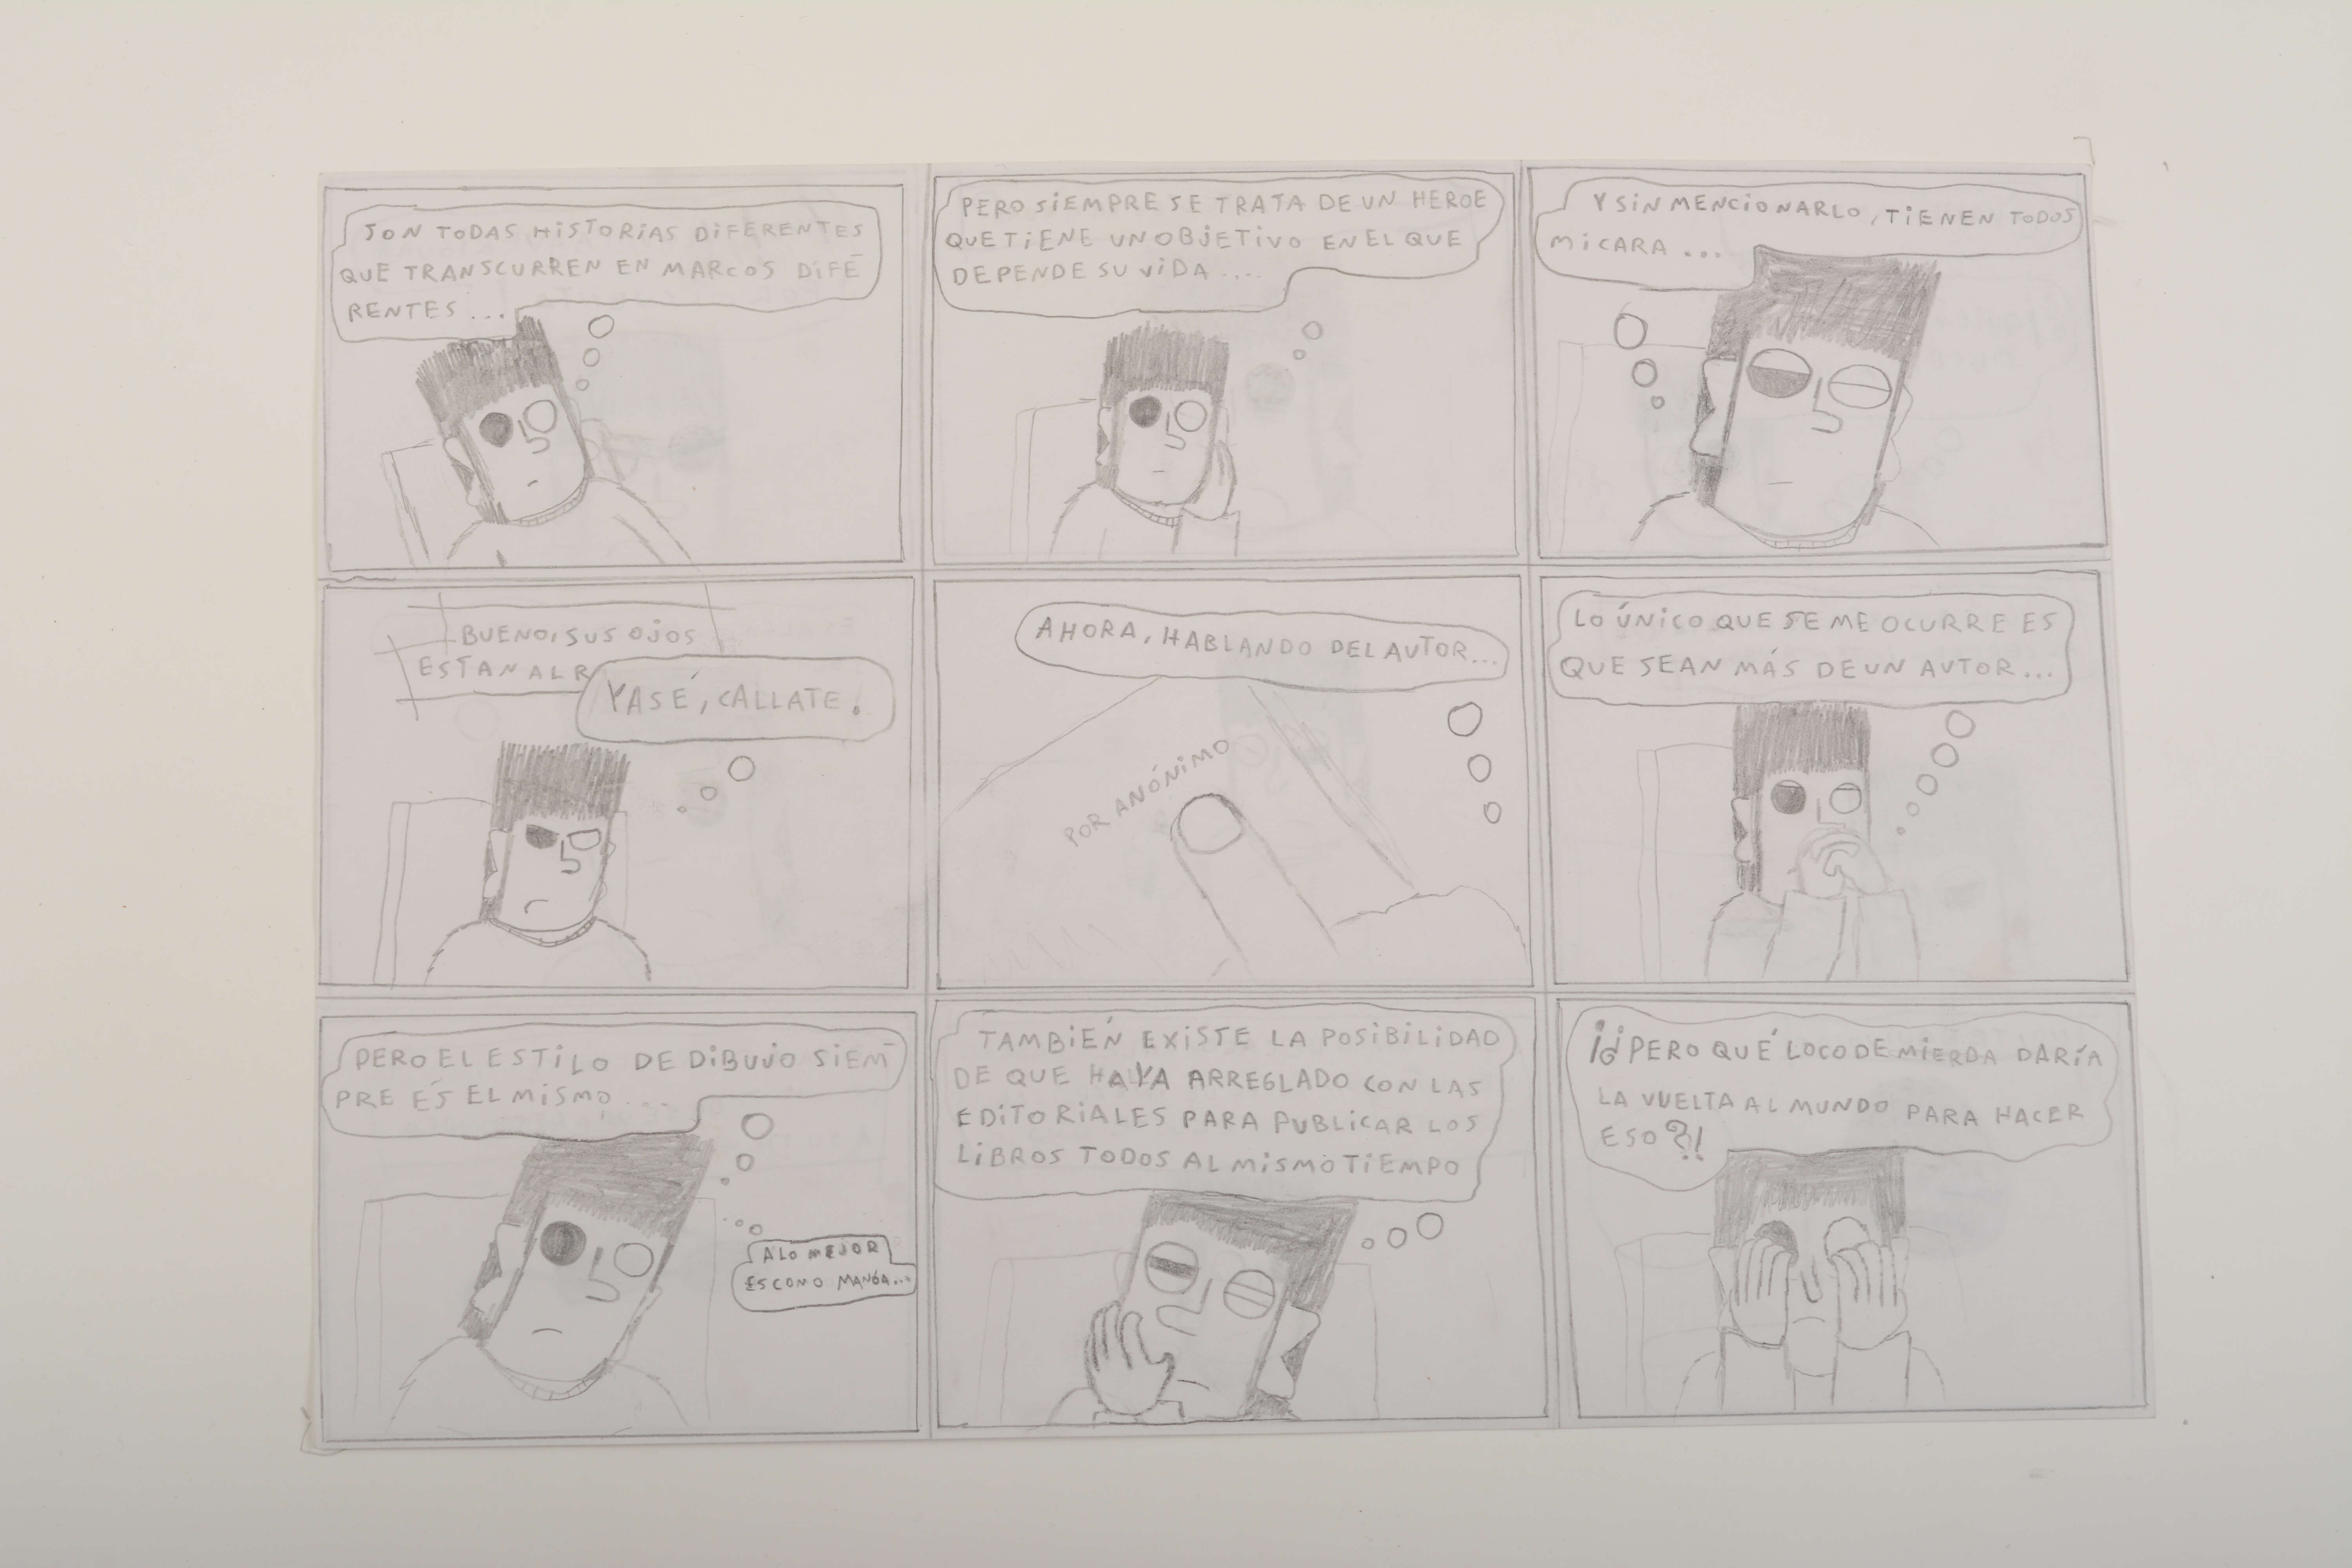 SON TODAS HISTORIAS DIFERENTES
QUE TRANSCURREN EN MARCOS DIFE
RENTES ...
PERO SIEMPRE SE TRATA DE UN HEROE
QUE TIENE UN OBJETIVO EN EL QUE
DEPENDE SU VIDA ....
Y SIN MENCIONARLO, TIENEN TODOS
MI CARA ...
BUENO, SUS OJOS
ESTAN AL R
YA SÉ, CALLATE.
AHORA, HABLANDO DEL AUTOR...
POR ANÓNIMO
LO ÚNICO QUE SE ME OCURRE ES
QUE SEAN MÁS DE UN AUTOR...
PERO EL ESTILO DE DIBUJO SIEM
PRE ES EL MISMO ...
A LO MEJOR
ES COMO MANGA...
TAMBIÉN EXISTE LA POSIBILIDAD
DE QUE HAYA ARREGLADO CON LAS
EDITORIALES PARA PUBLICAR LOS
LIBROS TODOS AL MISMO TIEMPO
¡¿PERO QUÉ LOCO DE MIERDA DARÍA
LA VUELTA AL MUNDO PARA HACER
ESO?!